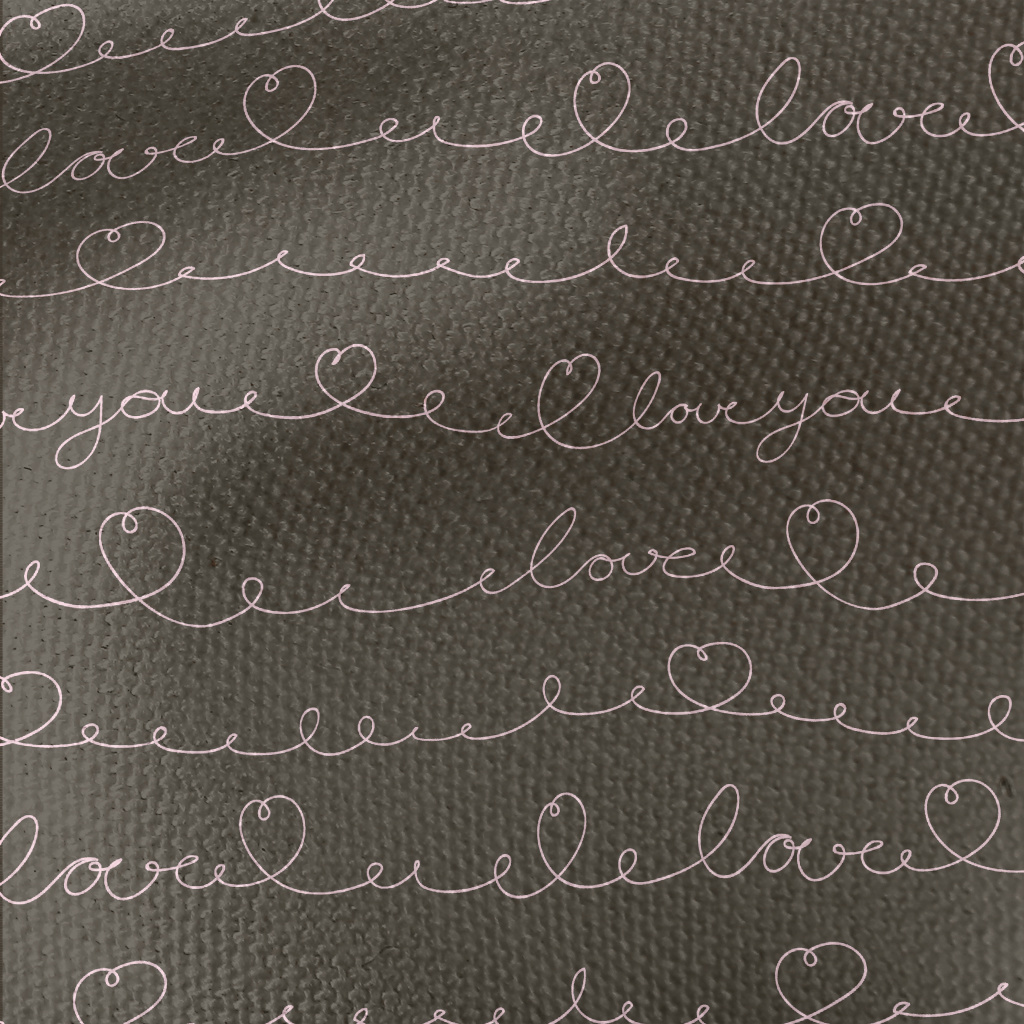 love love
you love you
love
love love